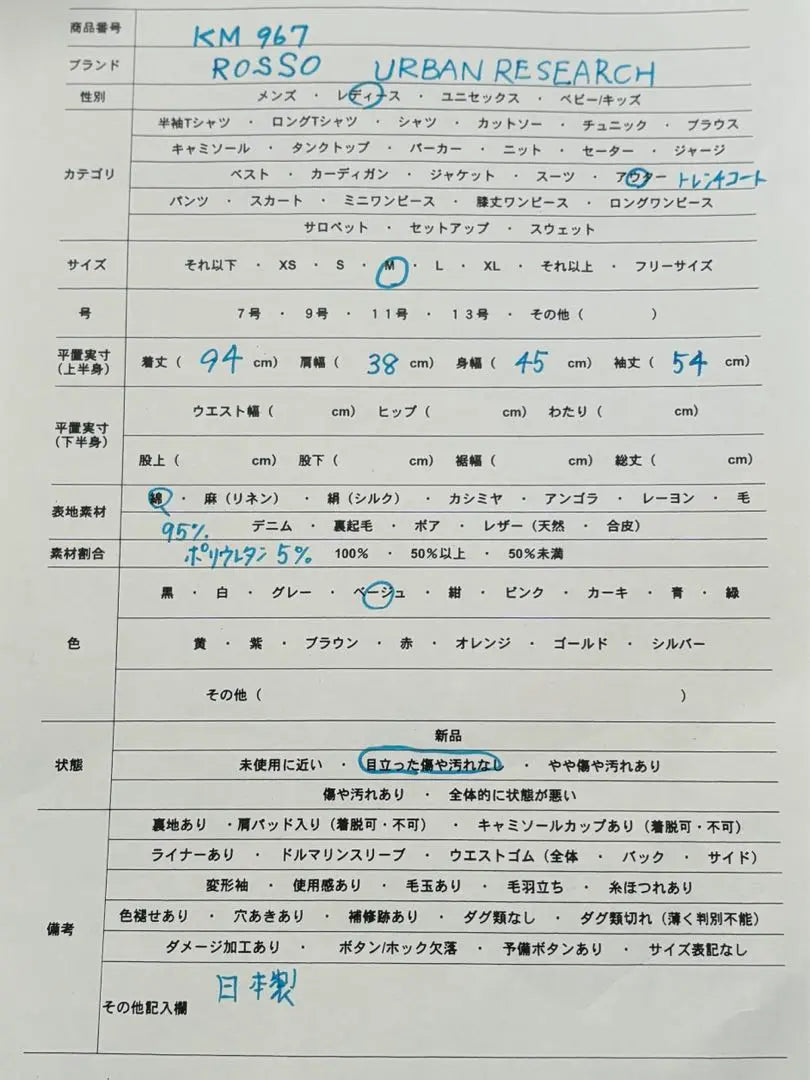 商品番号 KM 967
ブランド ROSSO URBAN RESEARCH
性別 メンズ ・ レディース ・ ユニセックス ・ ベビー/キッズ
半袖Tシャツ ・ ロングTシャツ ・ シャツ ・ カットソー ・ チュニック ・ ブラウス
キャミソール ・ タンクトップ ・ パーカー ・ ニット ・ セーター ・ ジャージ
カテゴリ ベスト ・ カーディガン ・ ジャケット ・ スーツ ・ アウター トレンチコート
パンツ ・ スカート ・ ミニワンピース ・ 膝丈ワンピース ・ ロングワンピース
サロペット ・ セットアップ ・ スウェット
サイズ それ以下 ・ XS ・ S ・ M ・ L ・ XL ・ それ以上 ・ フリーサイズ
号 7号 ・ 9号 ・ 11号 ・ 13号 ・ その他 ( )
平置実寸 (上半身) 着丈 ( 94 cm) 肩幅 ( 38 cm) 身幅 ( 45 cm) 袖丈 ( 54 cm)
ウエスト幅 ( cm) ヒップ ( cm) わたり ( cm)
平置実寸 (下半身)
股上 ( cm) 股下 ( cm) 裾幅 ( cm) 総丈 ( cm)
表地素材 綿 ・ 麻 (リネン) ・ 絹 (シルク) ・ カシミヤ ・ アンゴラ ・ レーヨン ・ 毛
95% デニム ・ 裏起毛 ・ ボア ・ レザー (天然 ・ 合皮)
素材割合 ポリウレタン 5% 100% ・ 50%以上 ・ 50%未満
黒 ・ 白 ・ グレー ・ ベージュ ・ 紺 ・ ピンク ・ カーキ ・ 青 ・ 緑
色 黄 ・ 紫 ・ ブラウン ・ 赤 ・ オレンジ ・ ゴールド ・ シルバー
その他 ( )
新品
状態 未使用に近い ・ 目立った傷や汚れなし ・ やや傷や汚れあり
傷や汚れあり ・ 全体的に状態が悪い
裏地あり ・ 肩パッド入り (着脱可・不可) ・ キャミソールカップあり (着脱可・不可)
ライナーあり ・ ドルマリンスリーブ ・ ウエストゴム (全体 ・ バック ・ サイド)
変形袖 ・ 使用感あり ・ 毛玉あり ・ 毛羽立ち ・ 糸ほつれあり
備考 色褪せあり ・ 穴あきあり ・ 補修跡あり ・ ダグ類なし ・ ダグ類切れ (薄く判別不能)
ダメージ加工あり ・ ボタン/ホック欠落 ・ 予備ボタンあり ・ サイズ表記なし
その他記入欄 日本製